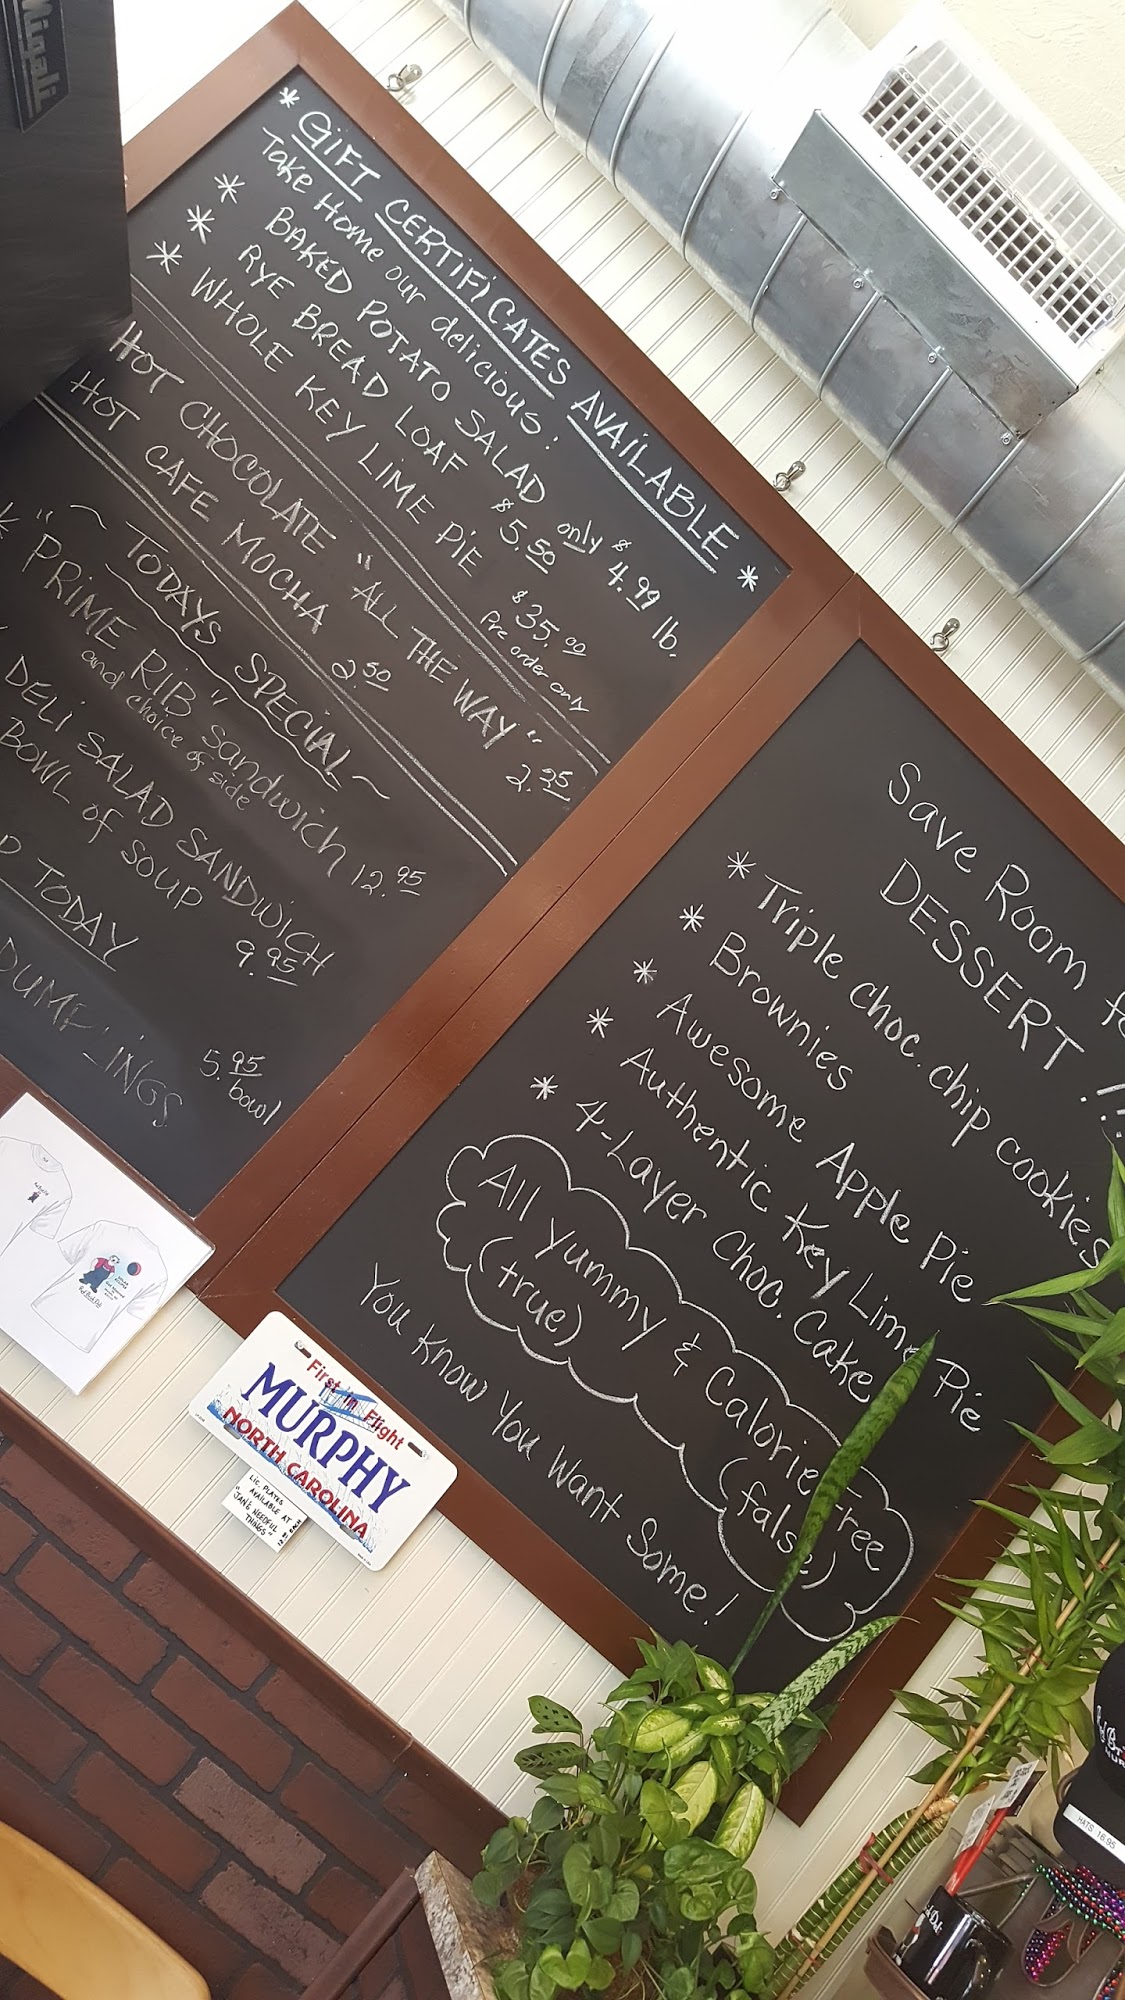 * GIFT CERTIFICATES AVAILABLE *
Take Home our delicious:
* BAKED POTATO SALAD only $4.99 lb.
* RYE BREAD LOAF $5.50
* WHOLE KEY LIME PIE $35.00
Pre order only
HOT CHOCOLATE "ALL THE WAY" 2.95
HOT CAFE MOCHA 2.50
~ TODAYS SPECIAL ~
* "PRIME RIB" Sandwich 12.95
and choice of side
DELI SALAD SANDWICH
BOWL OF SOUP 9.95
P TODAY
DUMPLINGS 5.95
bowl
Save Room fo
DESSERT!!
* Triple choc. chip cookies
* Brownies
* Awesome Apple Pie
* Authentic Key Lime Pie
* 4-Layer Choc. Cake
All yummy & Calorie Free
(true) (false)
You Know You Want Some!
First in Flight
MURPHY
NORTH CAROLINA
LIC. PLATES
AVAILABLE AT
"JAN'S NEEDFUL
THINGS"
HATS 16.95